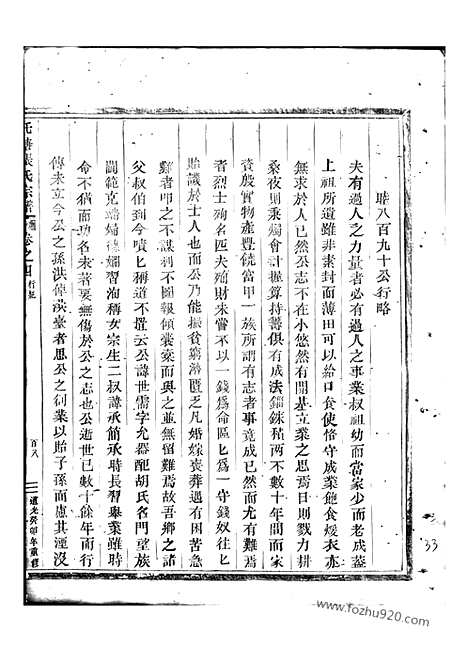 聯八百九十公行略
夫有過人之力量者必有過人之事業叔祖幼而當家少而老成蓋
上祖所遺雖非素封而薄田可以給口食使恪守成業飽食煖衣亦
無求於人已然公志不在小悠然以基立業之思焉日則戮力耕
桑夜則秉燭會計握算持籌俱有成法錙銖積兩不數十年間而家
資殷實物產豐饒富甲一族所謂有志者事竟成已然而尤有難焉
者烈士殉名匹夫殉財未嘗不以一錢為命區匕為一守錢奴往匕
貽譏於士人也而公乃能振貧窮濟匱乏凡婚嫁喪葬遇有困苦急
難者叩之不謀利不圖報傾囊槖而與之並無留難焉故吾鄉之諸
父叔伯到今嘖匕稱道不置云公諱世儒字允器配胡氏名門望族
閫範克端婦德嫺習洵稱女宗生二叔諱承簡承時長習舉業雖時
命不猶而功名未著要無傷於公之志也公逝世已數十餘年而行
傳未立今公之孫洪倬漢臺者思公之創業以貽子孫而慮其湮沒
張氏宗譜
卷之四
行畧
百八
道光癸卯年重修
33
www.fozhu920.com